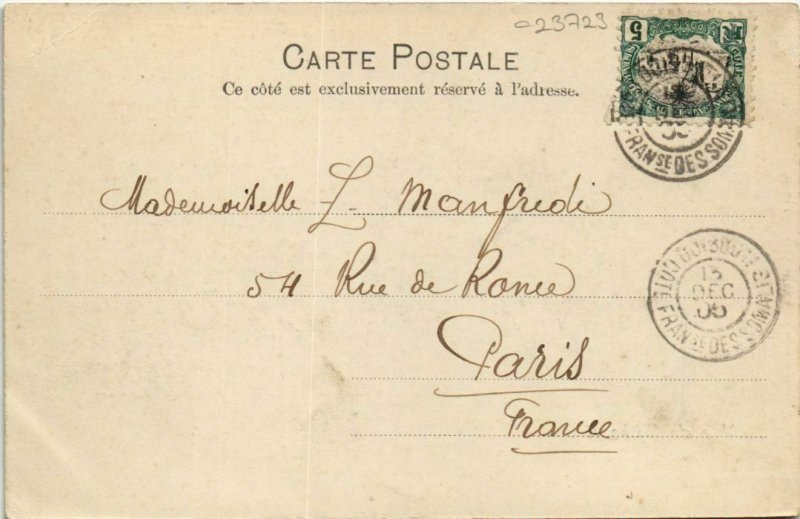 023723
CARTE POSTALE
Ce côté est exclusivement réservé à l'adresse.
5
FRANSE DES SOMA
Mademoiselle L. Manfredi
54 Rue de Rome
Paris
France
DJIBOUTI COTE FRANSE DES SOMALIS
15
DEC
05